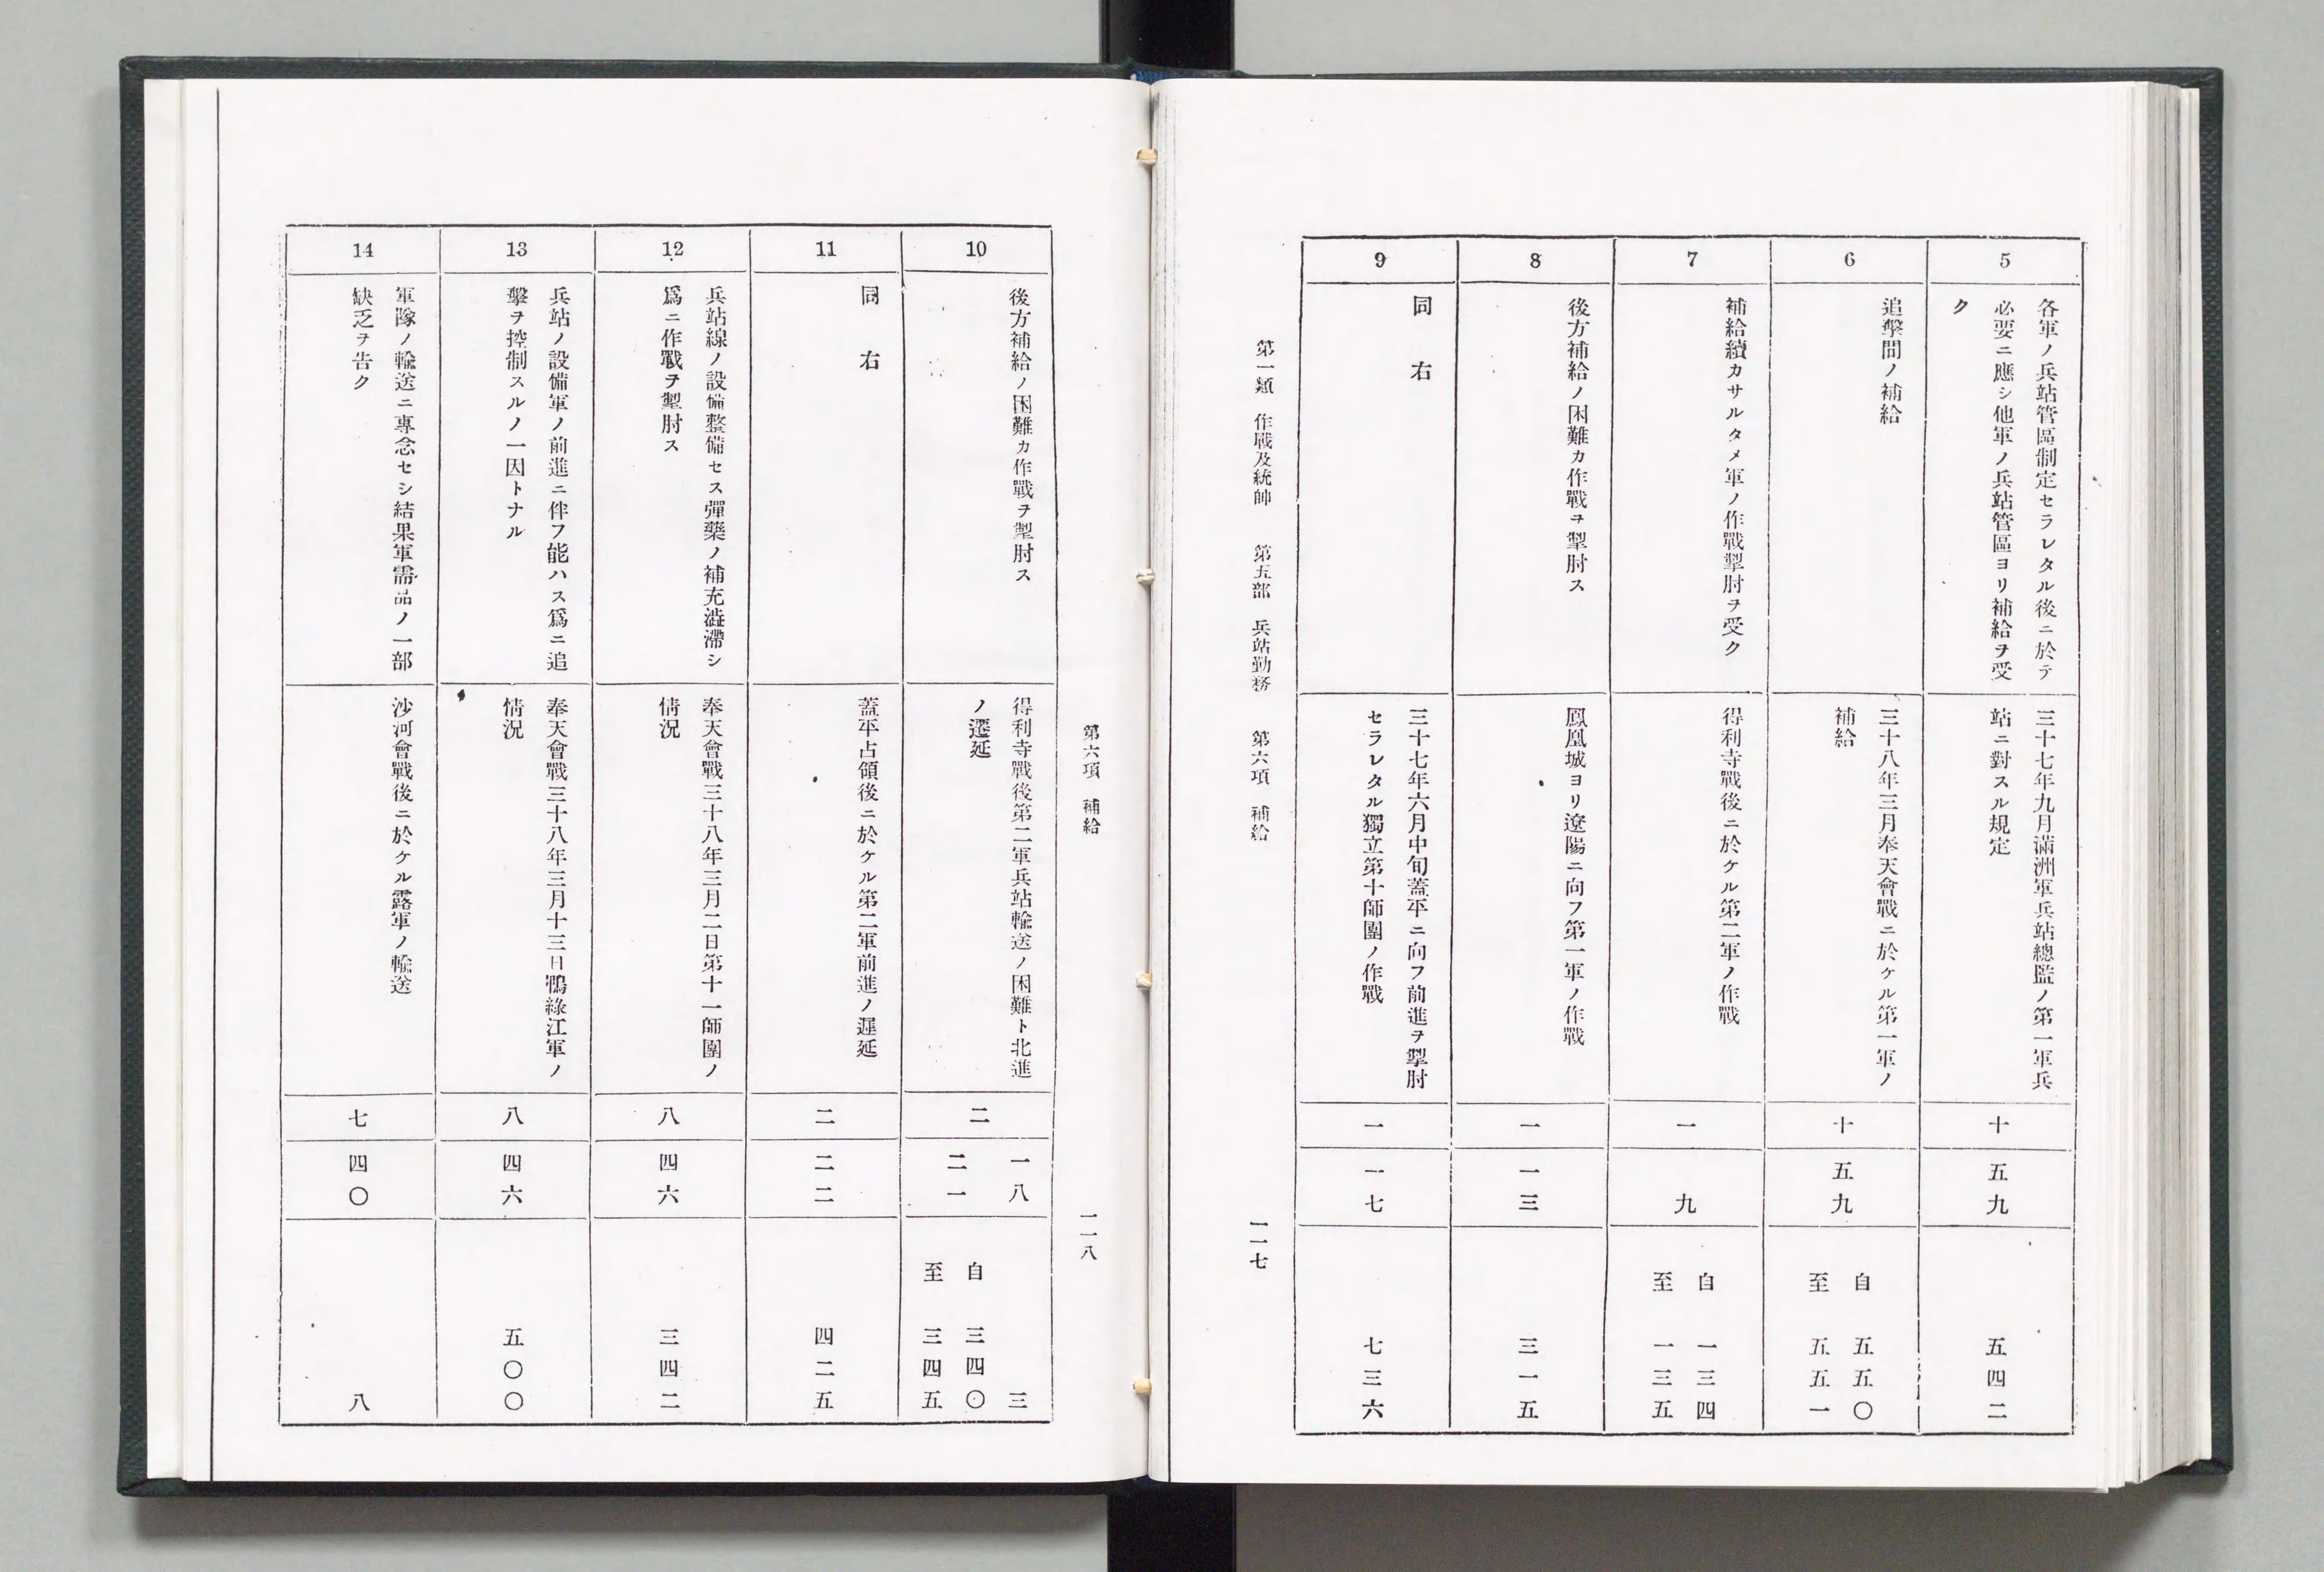 5
各軍ノ兵站管區制定セラレタル後ニ於テ
必要ニ應シ他軍ノ兵站管區ヨリ補給ヲ受
ク
三十七年九月滿洲軍兵站總監ノ第一軍兵
站ニ對スル規定
十
五九
五四二
6
追擊間ノ補給
三十八年三月奉天會戰ニ於ケル第一軍ノ
補給
十
五九
自 五五〇
至 五五一
7
補給續カサルタメ軍ノ作戰掣肘ヲ受ク
得利寺戰後ニ於ケル第二軍ノ作戰
一
九
自 一三四
至 一三五
8
後方補給ノ困難カ作戰ヲ掣肘ス
鳳凰城ヨリ遼陽ニ向フ第一軍ノ作戰
一
一三
三一五
9
同 右
三十七年六月中旬蓋平ニ向フ前進ヲ掣肘
セラレタル獨立第十師團ノ作戰
一
一七
七三六
第一類 作戰及統帥 第五部 兵站勤務 第六項 補給
一一七
第六項 補給
一一八
10
後方補給ノ困難カ作戰ヲ掣肘ス
得利寺戰後第二軍兵站輸送ノ困難ト北進
ノ遷延
二
一八
二一
三
自 三四〇
至 三四五
11
同 右
蓋平占領後ニ於ケル第二軍前進ノ遲延
二
二二
四二五
12
兵站線ノ設備整備セス彈藥ノ補充澁滯シ
爲ニ作戰ヲ掣肘ス
奉天會戰三十八年三月二日第十一師團ノ
情況
八
四六
三四二
13
兵站ノ設備軍ノ前進ニ伴フ能ハス爲ニ追
擊ヲ控制スルノ一因トナル
奉天會戰三十八年三月十三日鴨綠江軍ノ
情況
八
四六
五〇〇
14
軍隊ノ輸送ニ專念セシ結果軍需品ノ一部
缺乏ヲ告ク
沙河會戰後ニ於ケル露軍ノ輸送
七
四〇
八